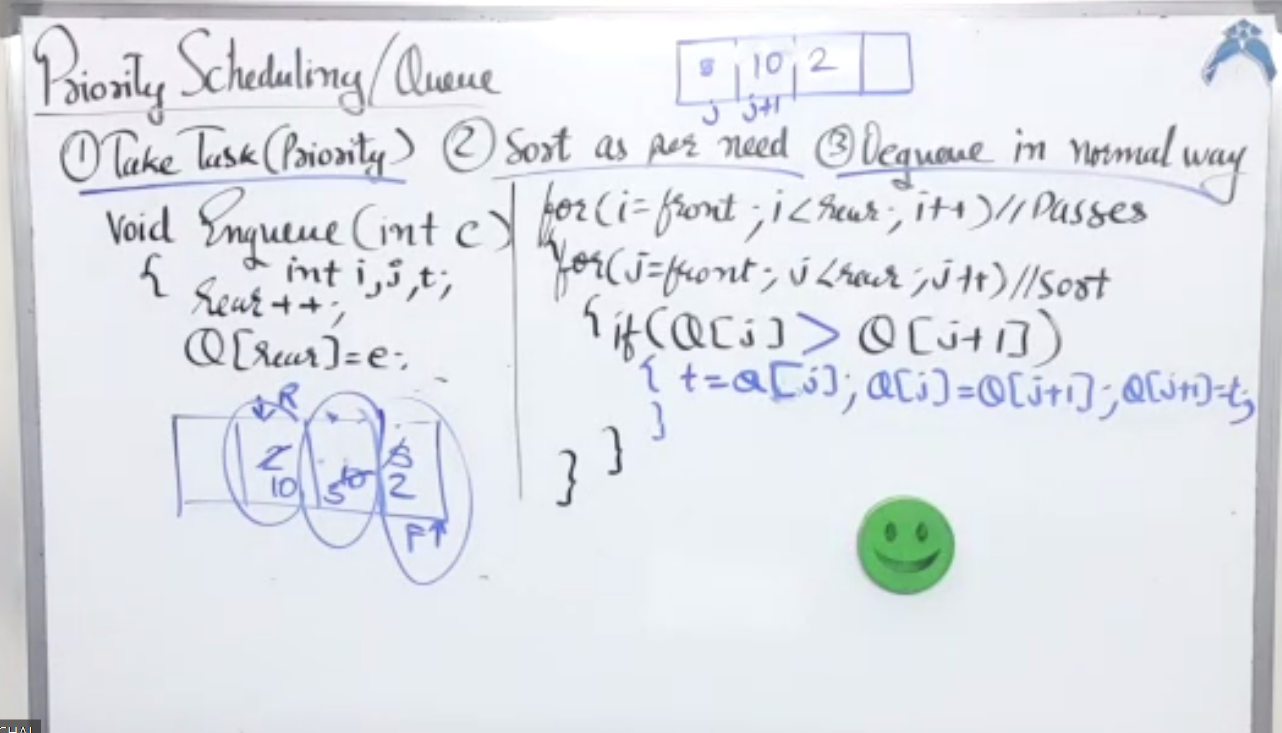 Priority Scheduling/Queue
5 10 2
j j+1
① Take Task (Priority) ② Sort as per need ③ Dequeue in normal way
Void Enqueue (int e)
{ int i,j,t;
rear++;
Q[rear]=e;
for(i=front; i<rear; i++)//Passes
for(j=front; j<rear; j++)//Sort
{ if(Q[j] > Q[j+1])
{ t=Q[j]; Q[j]=Q[j+1]; Q[j+1]=t;
}
}
}
R
2 5
10 5 10 2
F